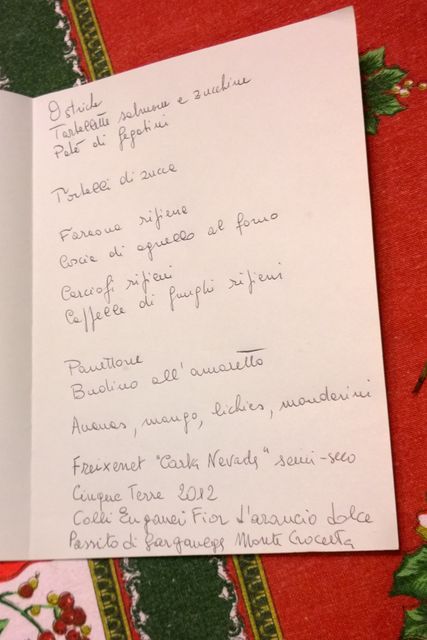 Ostriche
Tartellette salmone e zucchine
Paté di fegatini
Tortelli di zucca
Faraona ripiena
Coscia di agnello al forno
Carciofi ripieni
Cappelle di funghi ripieni
Panettone
Budino all'amaretto
Ananas, mango, lichies, mandarini
Freixenet "Carta Nevada" semi-seco
Cinque Terre 2012
Colli Euganei Fior d'arancio dolce
Passito di Garganega Monte Crocetta